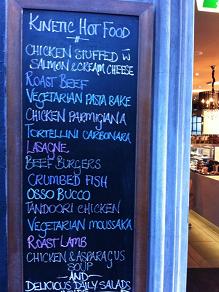 KINETIC HOT FOOD
#
CHICKEN STUFFED W
SALMON & CREAM CHEESE
ROAST BEEF
VEGETARIAN PASTA BAKE
CHICKEN PARMIGIANA
TORTELLINI CARBONARA
LASAGNE
BEEF BURGERS
CRUMBED FISH
OSSO BUCCO
TANDOORI CHICKEN
VEGETARIAN MOUSSAKA
ROAST LAMB
CHICKEN & ASPARAGUS
SOUP
-AND-
DELICIOUS DAILY SALADS